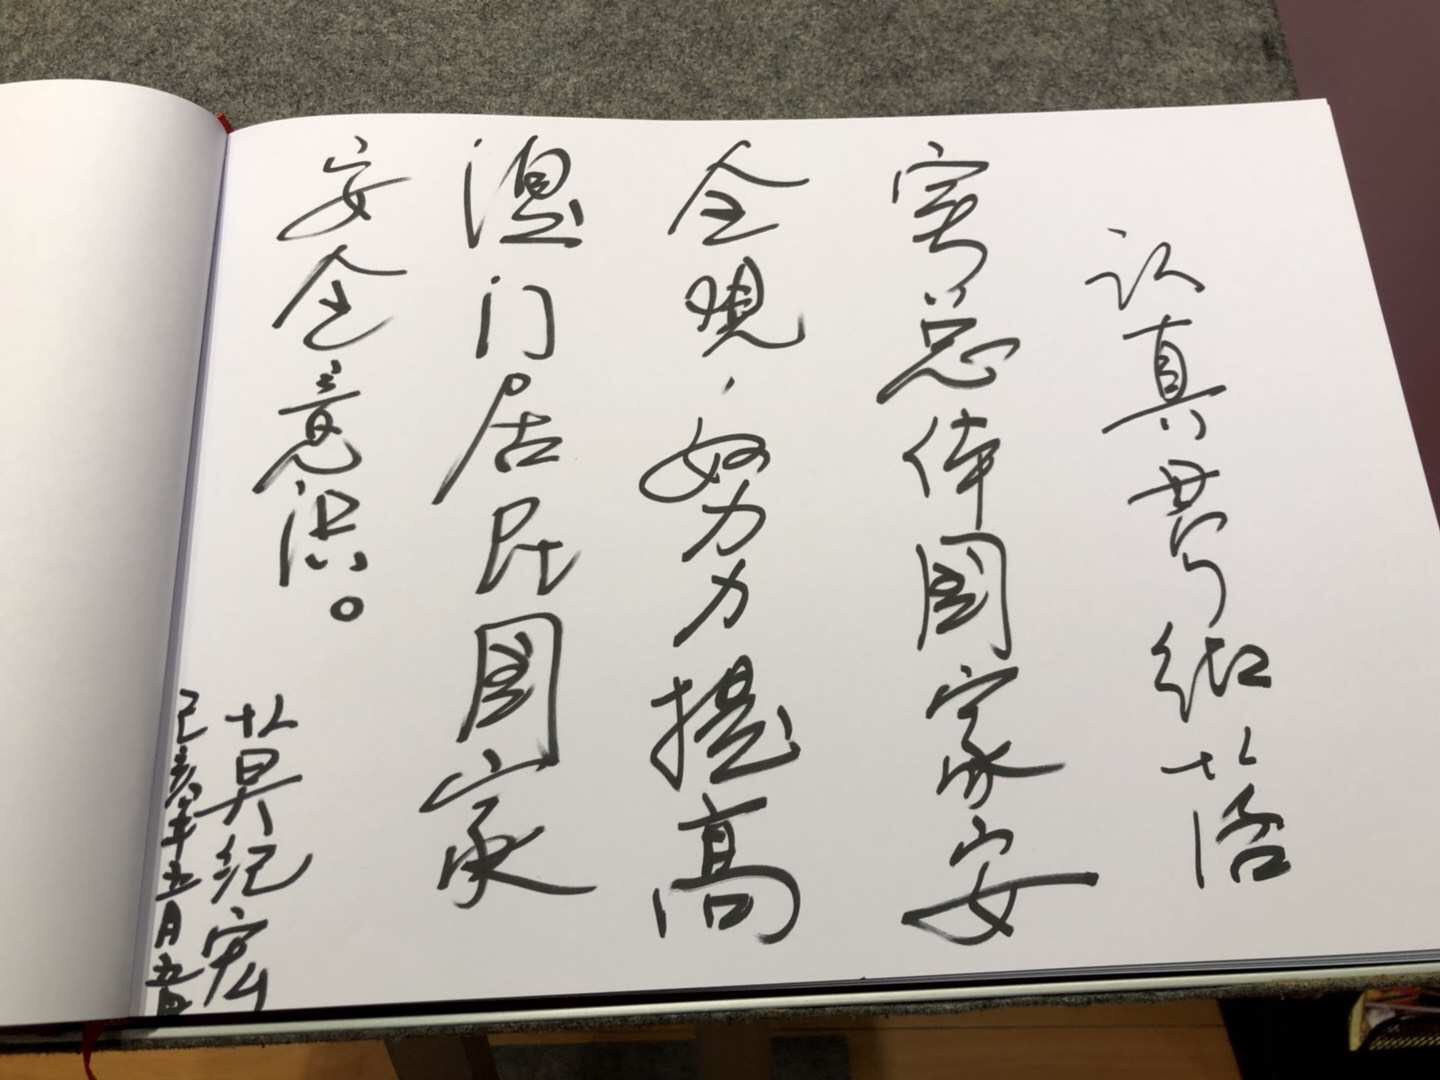 认真贯彻落
实总体国家安
全观，努力提高
澳门居民国家
安全意识。
莫纪宏
己亥年五月五